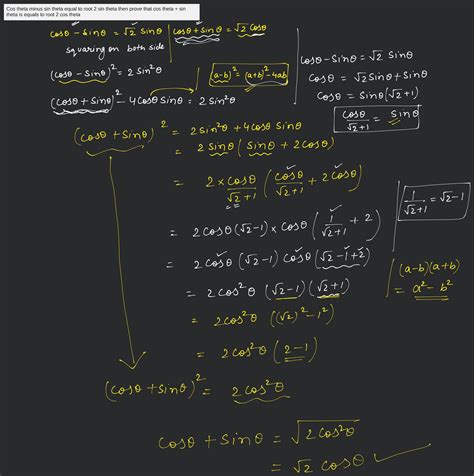 Cos theta minus sin theta equal to root 2 sin theta then prove that cos theta + sin
theta is equals to root 2 cos theta
cosθ - sinθ = √2 sinθ | cosθ + sinθ = √2 cosθ
squaring on both side
(cosθ - sinθ)² = 2 sin²θ
(a-b)² = (a+b)² - 4ab
(cosθ + sinθ)² - 4 cosθ sinθ = 2 sin²θ
cosθ - sinθ = √2 sinθ
cosθ = √2 sinθ + sinθ
cosθ = sinθ (√2+1)
cosθ/(√2+1) = sinθ
(cosθ + sinθ)² = 2 sin²θ + 4 cosθ sinθ
= 2 sinθ (sinθ + 2 cosθ)
= 2 × cosθ/(√2+1) (cosθ/(√2+1) + 2 cosθ)
1/(√2+1) = √2-1
= 2 cosθ (√2-1) × cosθ (1/(√2+1) + 2)
= 2 cosθ (√2-1) cosθ (√2-1+2)
(a-b)(a+b)
= a² - b²
= 2 cos²θ (√2-1) (√2+1)
= 2 cos²θ ((√2)² - 1²)
= 2 cos²θ (2-1)
(cosθ + sinθ)² = 2 cos²θ
cosθ + sinθ = √2 cos²θ
= √2 cosθ